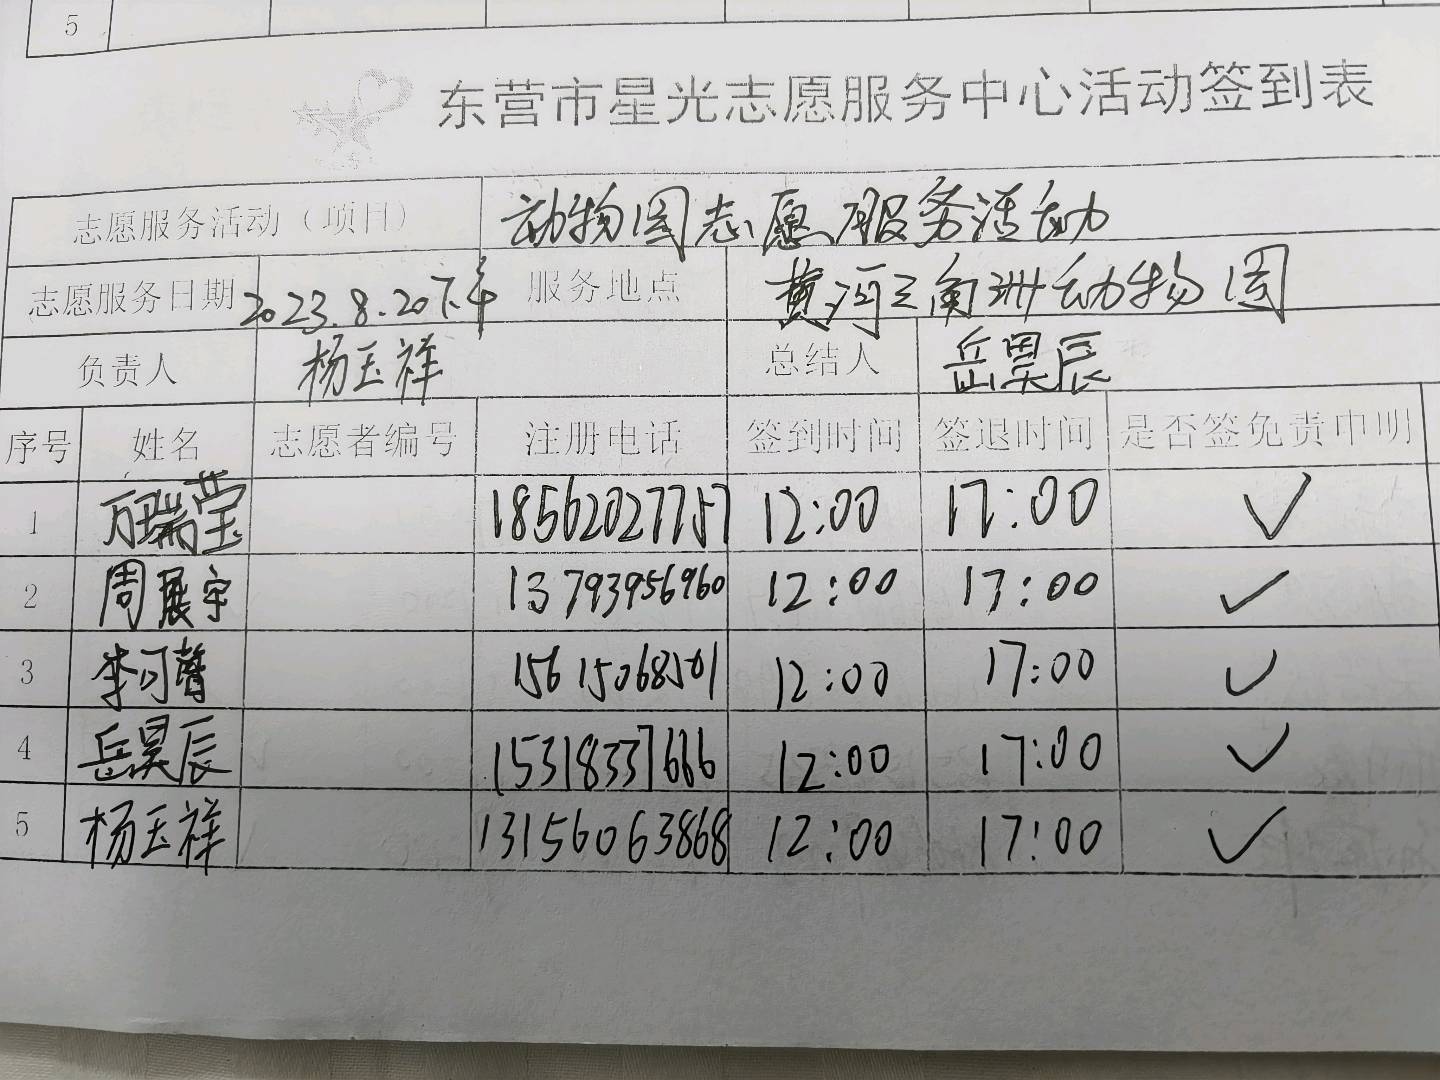 5
东营市星光志愿服务中心活动签到表
志愿服务活动（项目） 动物园志愿服务活动
志愿服务日期 2023.8.20下午 服务地点 黄河三角洲动物园
负责人 杨玉祥 总结人 岳昊辰
序号 姓名 志愿者编号 注册电话 签到时间 签退时间 是否签免责申明
1 万瑞莹 18562027757 12:00 17:00 ✓
2 周展宇 13793956960 12:00 17:00 ✓
3 李可馨 15615068501 12:00 17:00 ✓
4 岳昊辰 15318337666 12:00 17:00 ✓
5 杨玉祥 13156063868 12:00 17:00 ✓